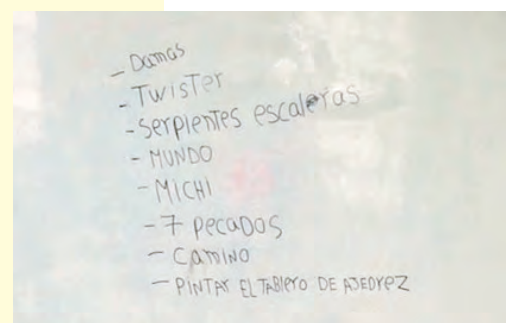 - Damas
- TWISTer
- Serpientes escaleras
- MUNDO
- MICHI
- 7 Pecados
- Camino
- PINTAr EL TABlero DE AJEDreZ